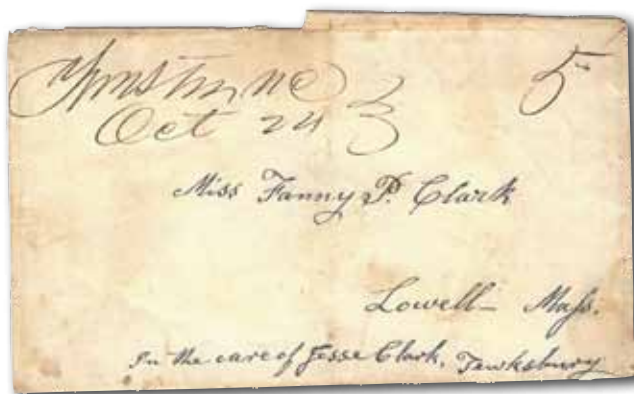 Me 5
Oct 24
Miss Fanny P. Clark
Lowell - Mass.
In the care of Jesse Clark, Tewksbury